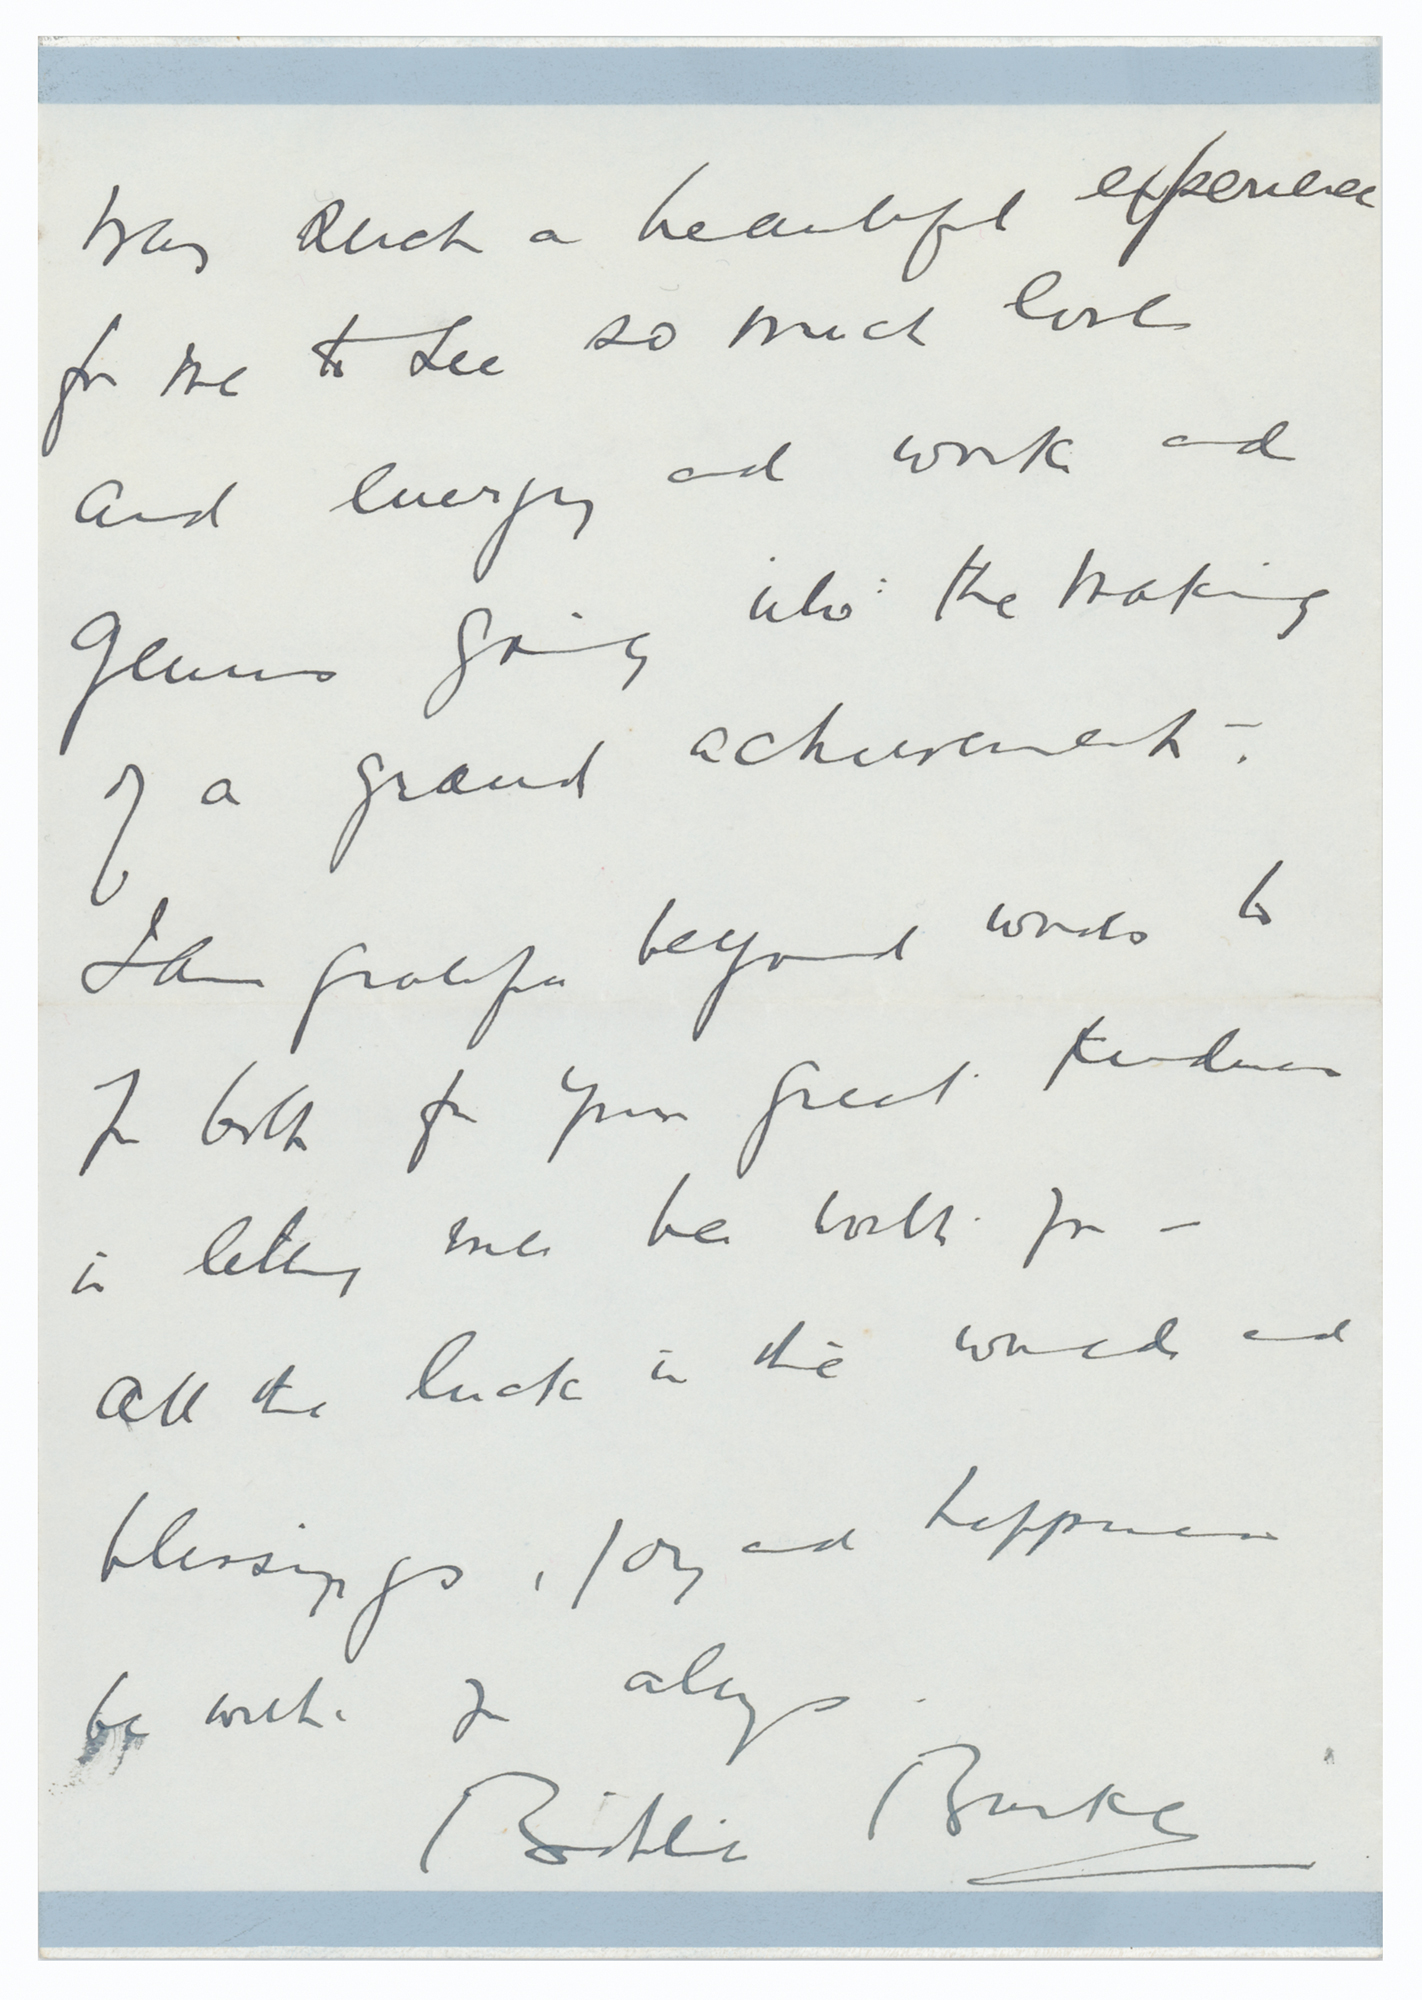 was such a beautiful experience
for me to see so much love
and energy and work and
genius going into the making
of a grand achievement -.
I am grateful beyond words to
you both for your great kindness
in letting me be with you -
all the luck in the world and
blessings, joy and happiness
be with you always.
Billie Burke